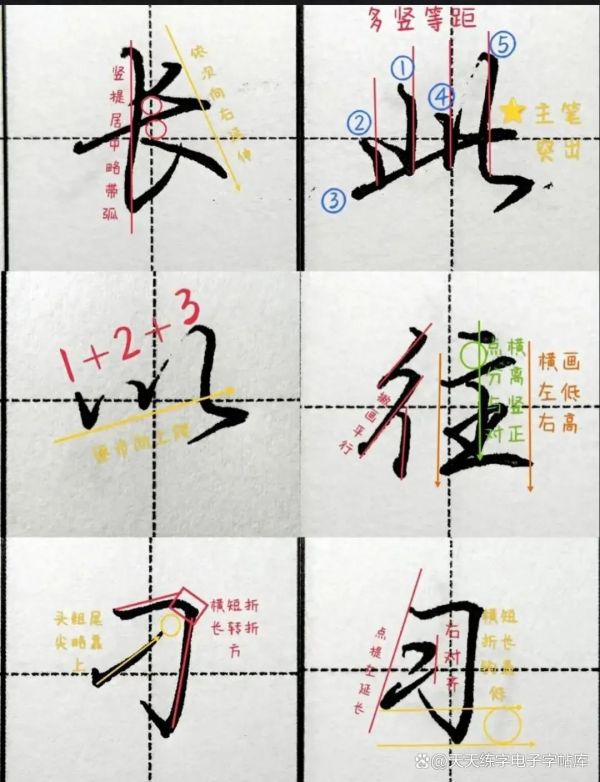 长
竖提居中略带弧
依次向右延伸
多竖等距
此
①
②
③
④
⑤
主笔
突出
1+2+3
以
往
撇画平行
点横
分离
点竖
对正
横画
左低
右高
刁
头粗尾
尖略靠
上
横短折
长转折
方
习
点提左延长
右对齐
横短
折长
钩最
低
@天天练字电子字帖库